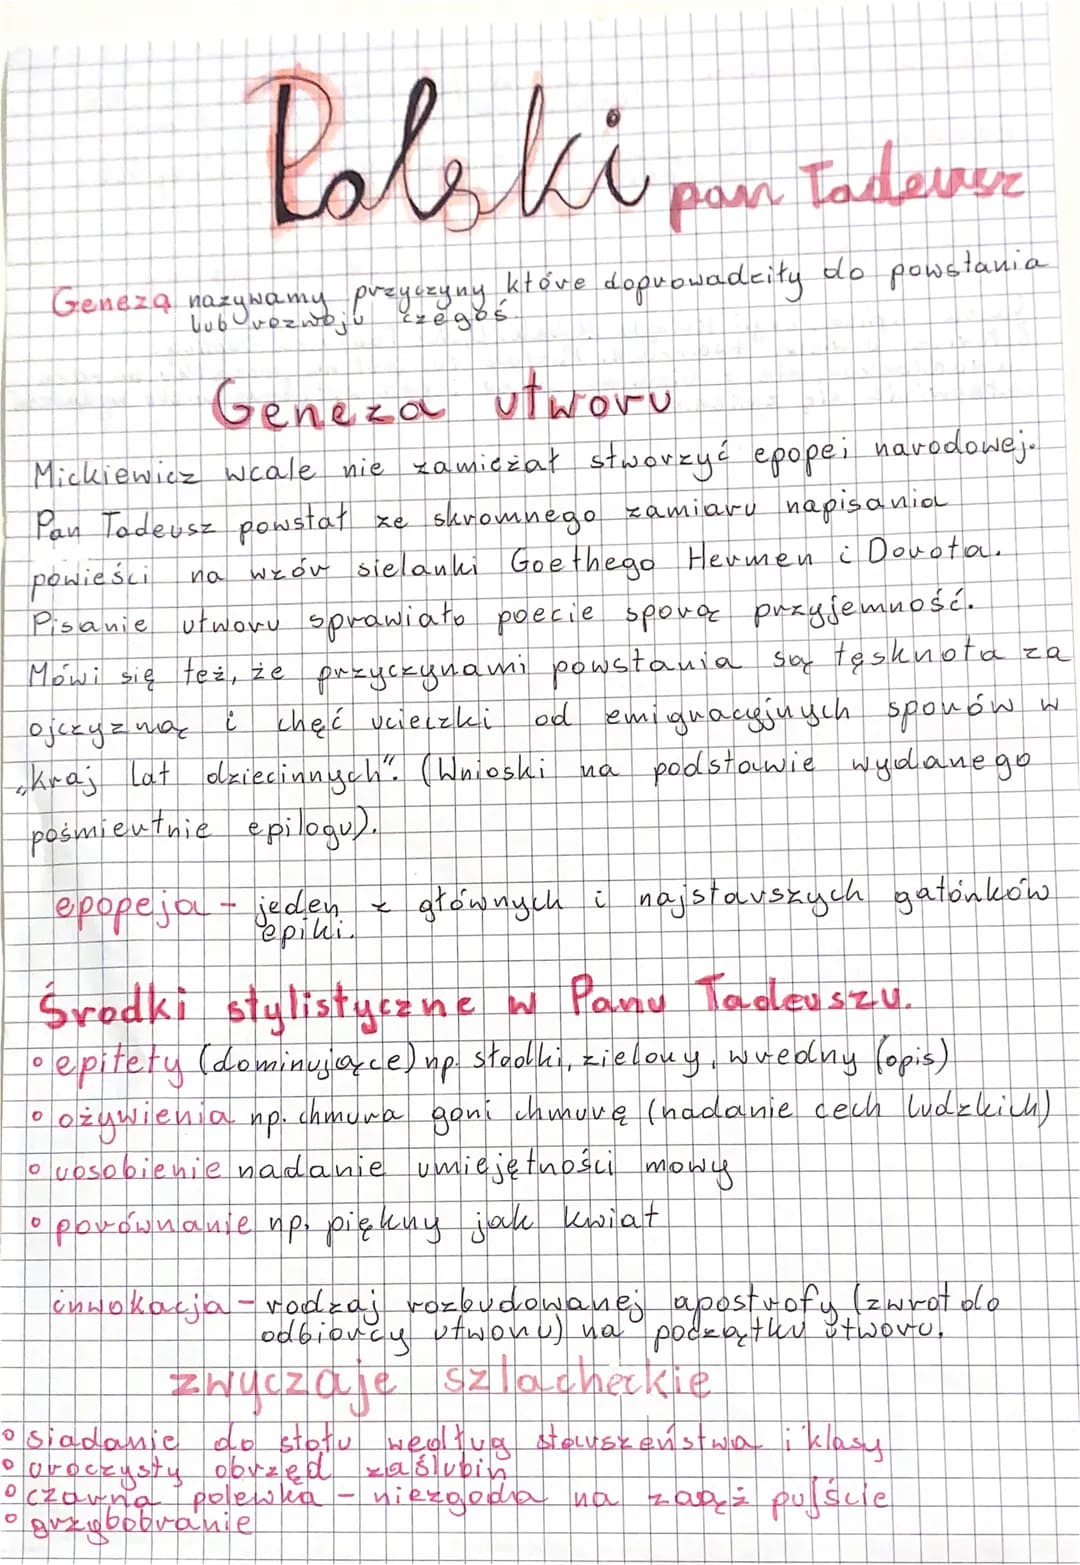 Polski pan Tadeusz
Genezą nazywamy przyczyny które doprowadziły do powstania
lub rozwoju czegoś.
Geneza utworu
Mickiewicz wcale nie zamieżał stworzyć epopei narodowej.
Pan Tadeusz powstał ze skromnego zamiaru napisania
powieści na wzór sielanki Goethego Hermen i Dorota.
Pisanie utworu sprawiało poecie sporą przyjemność.
Mówi się też, że przyczynami powstania są tęsknota za
ojczyzną i chęć ucieczki od emigracyjnych sporów w
„kraj lat dziecinnych". (Wnioski na podstawie wydanego
pośmiertnie epilogu).
epopeja - jeden z głównych i najstarszych gatónków
epiki.
Środki stylistyczne w Panu Tadeuszu.
• epitety (dominujące) np. słodki, zielony, wredny (opis)
• ożywienia np. chmura goni chmurę (nadanie cech ludzkich)
• uosobienie nadanie umiejętności mowy
• porównanie np. piękny jak kwiat
inwokacja - rodzaj rozbudowanej apostrofy (zwrot do
odbiorcy utworu) na początku utworu.
zwyczaje szlacheckie
• siadanie do stołu według starszeństwa i klasy
• uroczysty obrzęd zaślubin
• czarna polewka - niezgoda na zaąż pujście
• grzybobranie